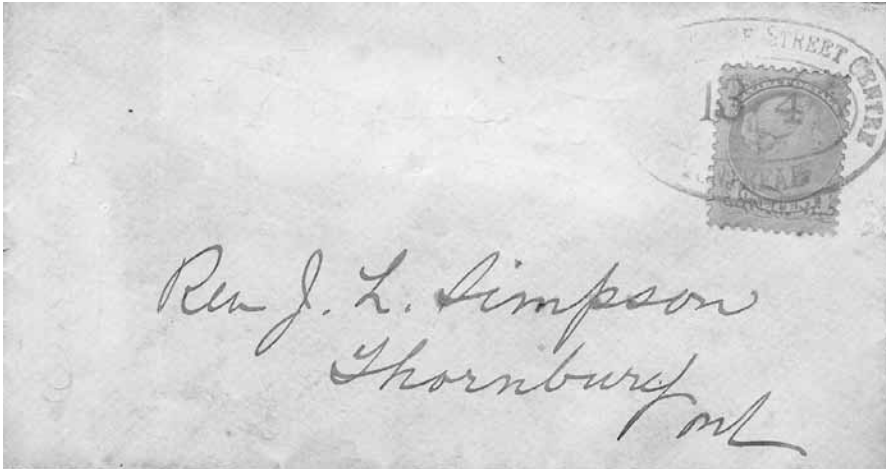 STREET CENTRE
18 4
MONTREAL
Rev J. L. Simpson
Thornbury
Ont